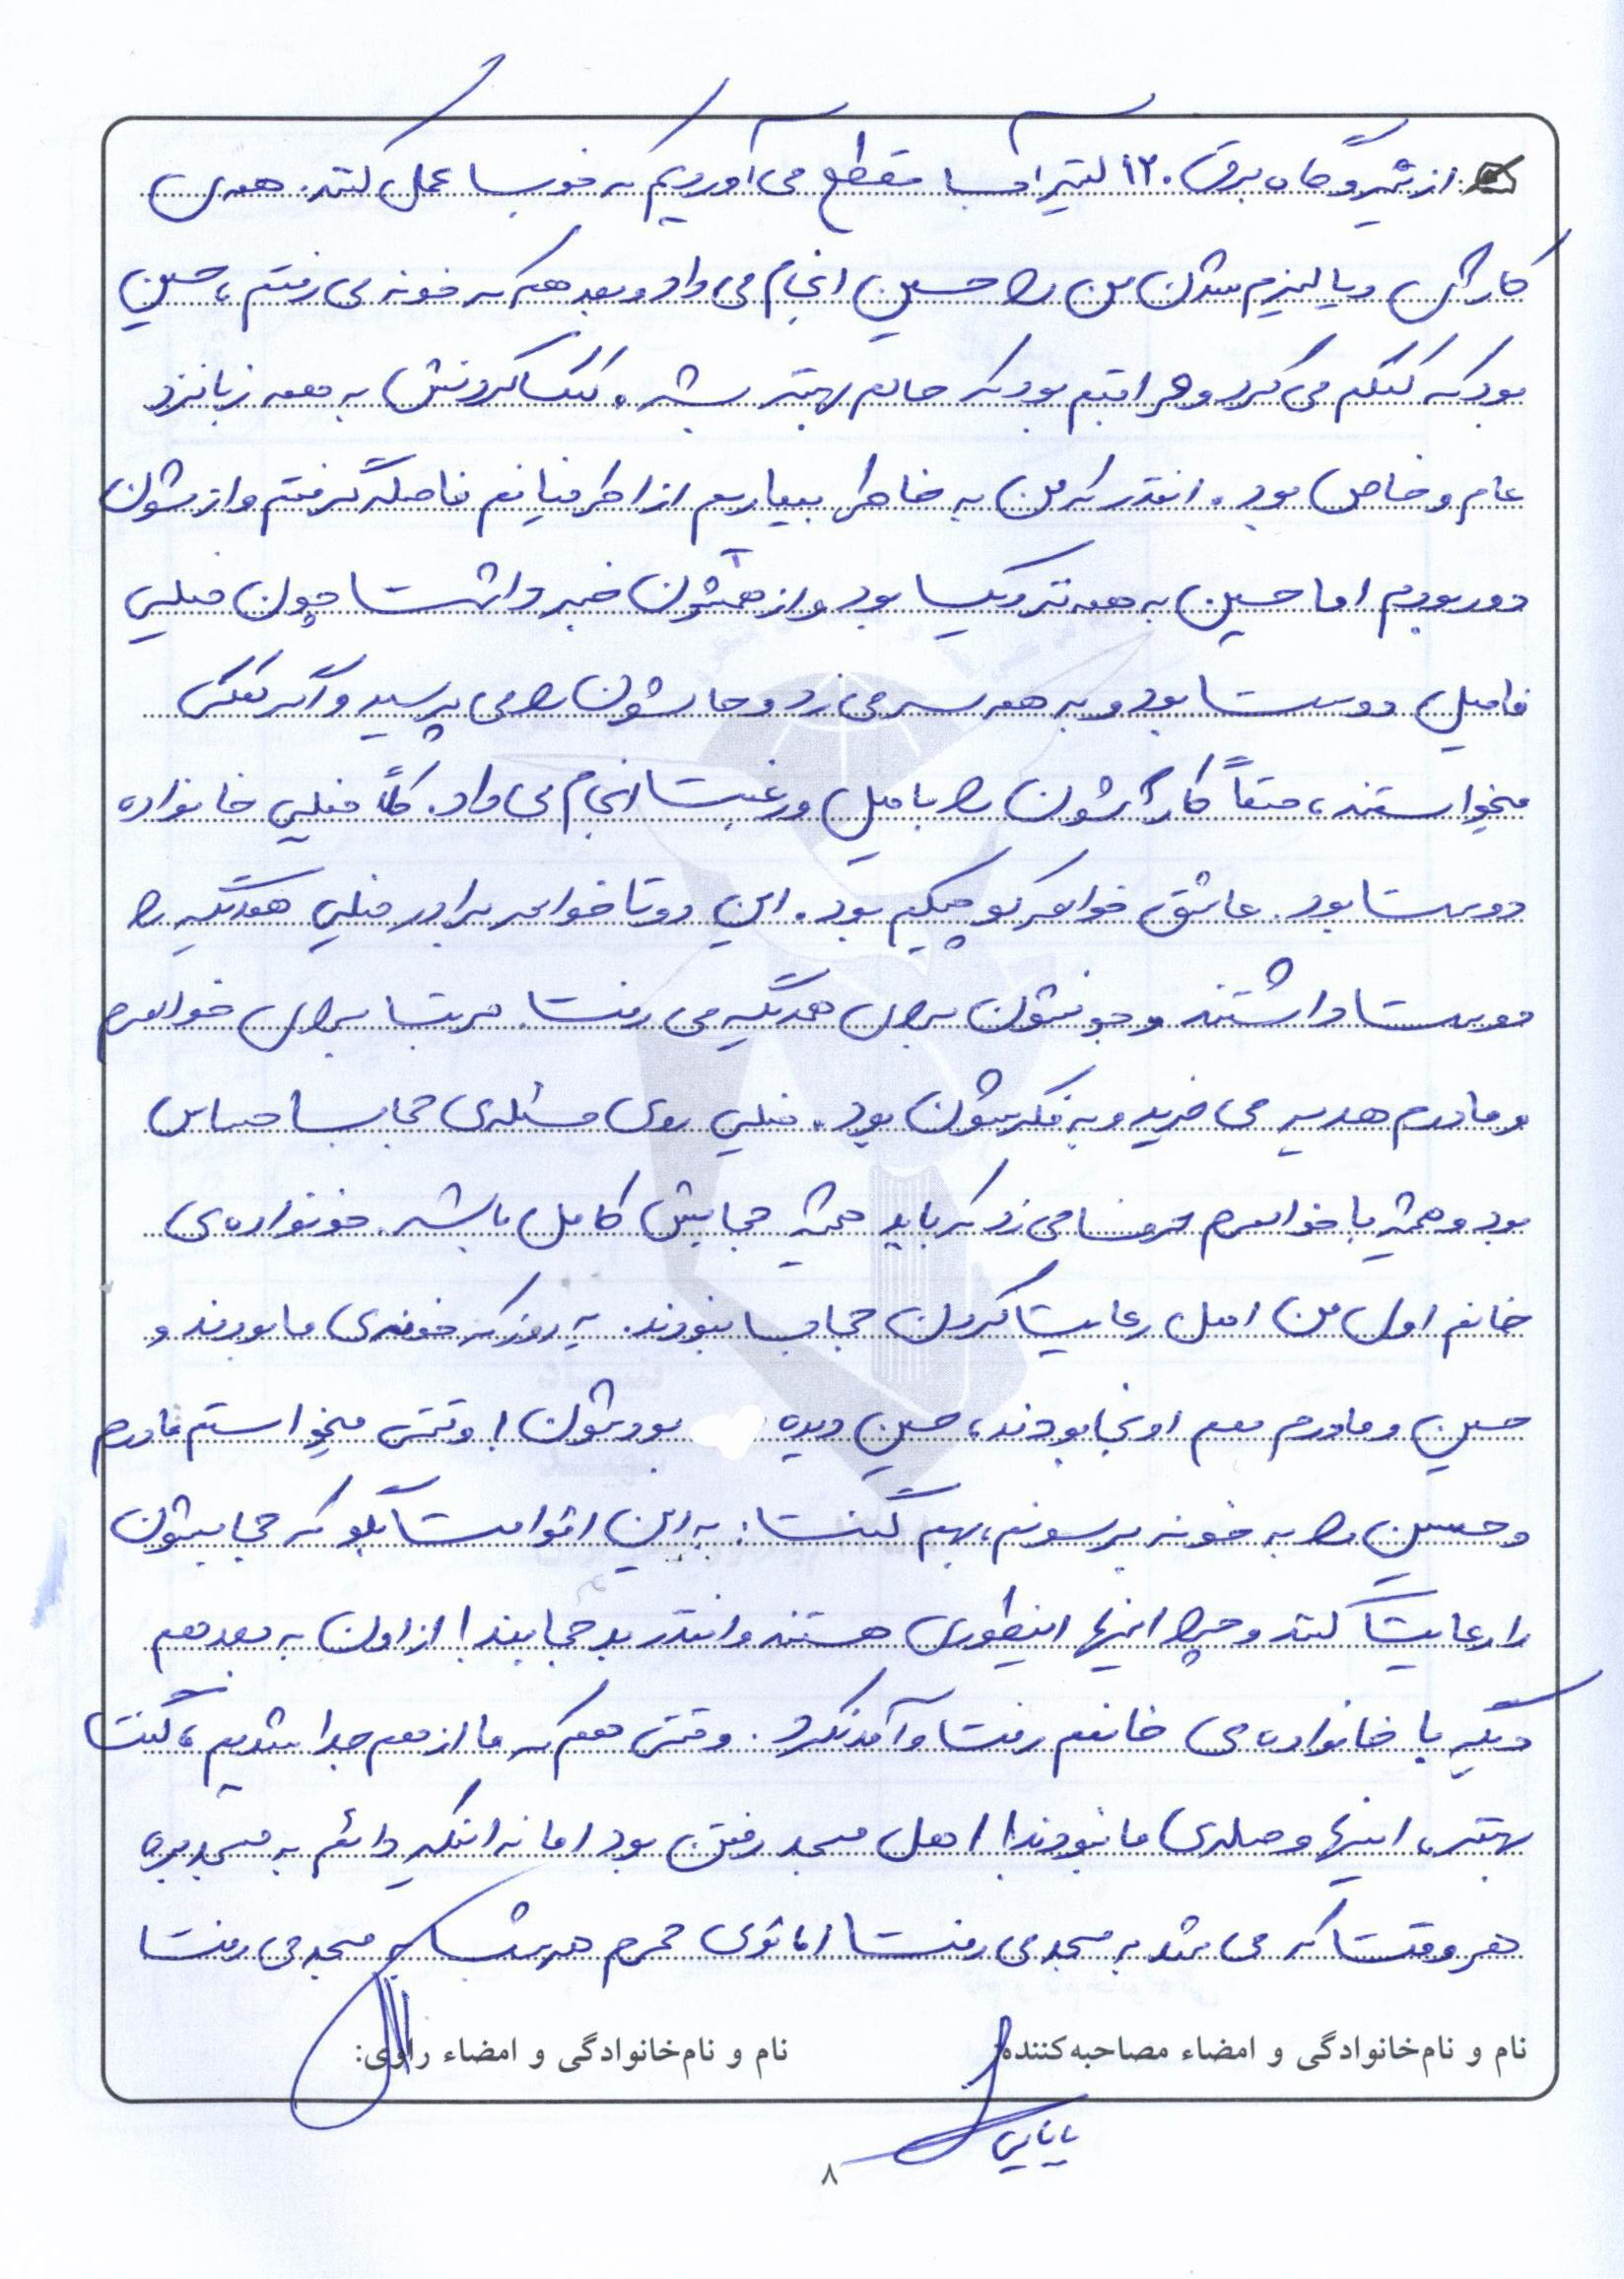 از نیروگاه برق ۱۲۰ لیتر آب مقطع می‌آوردیم که خوب عمل کند. همه‌ی
کارای دیالیزم شدن من را حسین انجام می‌داد و بعد هم که خونه می‌رفتم، حسین
بود که کمکم می‌کرد و مراقبم بود که حالم بهتر بشه. کمک کردنش به همه زبانزد
عام و خاص بود. انقدر که من به خاطر بیماریم از اطرفیانم فاصله گرفتم و ازشون
دور بودم اما حسین به همه نزدیک بود و از همشون خبر داشت چون خیلی
فامیل دوست بود و به همه سر می‌زد و حالشون را می‌پرسید و اگر کمکی
میخواستند، حتماً کاراشون را با میل و رغبت انجام می‌داد. کلاً خیلی خانواده
دوست بود. عاشق خواهر کوچیکم بود. این دوتا خواهر برادر خیلی همدیگه را
دوست داشتند و جونشون برای همدیگه می‌رفت. مرتب برای خواهرم
و مادرم هدیه می‌خرید و به فکرشون بود. خیلی روی مسئله‌ی حجاب حساس
بود و همیشه با خواهرم حرف می‌زد که باید همیشه حجابش کامل باشه. خونواده‌ی
خانم اول من اهل رعایت کردن حجاب نبودند. یه روز که خونه‌ی ما بودند و
حسین و مادرم هم اونجا بودند، حسین دیده بودشون! وقتی میخواستم مادرم
و حسین را به خونه برسونم، بهم گفت: به این اقوامت بگو که حجابشون
را رعایت کنند و چرا اینها اینطوری هستند و انقدر بد حجابند! از اون به بعد هم
دیگه با خانواده‌ی خانمم رفت و آمد نکرد. وقتی هم که ما از هم جدا شدیم، گفت
بهتر، اینها وصله‌ی ما نبودند! اهل مسجد رفتن بود اما نه اینکه دائم به مسجد بره
هر وقت که می‌شد به مسجد می‌رفت اما توی محرم هر شب به مسجد می‌رفت
نام و نام‌خانوادگی و امضاء مصاحبه‌کننده:
نام و نام‌خانوادگی و امضاء راوی:
۸